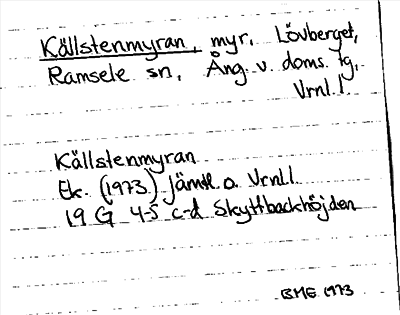 Källstenmyran, myr, Lövberget,
Ramsele sn, Ång. v. doms. tg,
Vrnl.l.
Källstenmyran
Ek. (1973) Jämtl o. Vrnl.l.
19 G 4-5 c-d Skyttbackhöjden
BME 1973